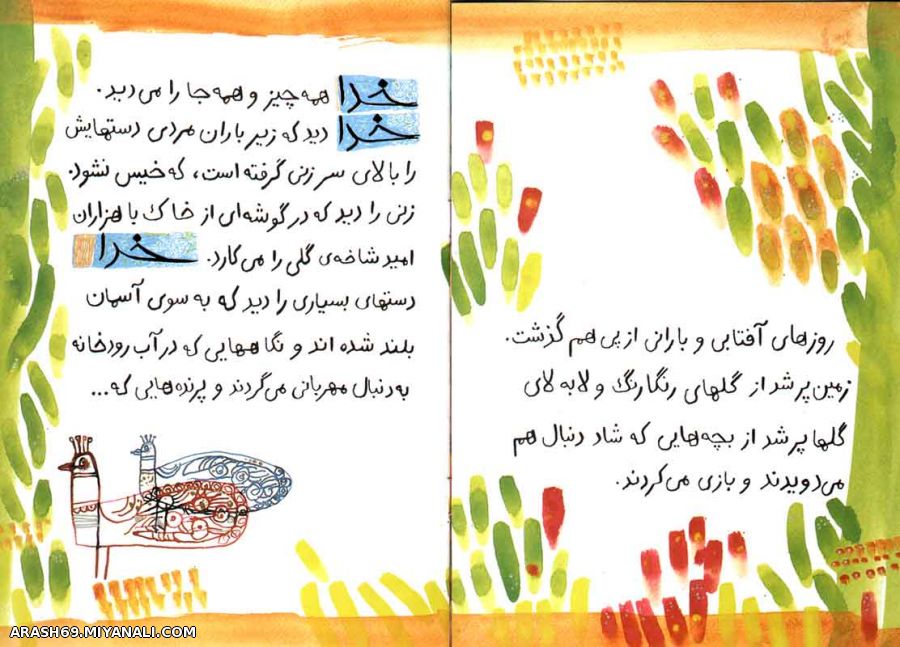 روزهای آفتابی و بارانی از پی هم گذشت.
زمین پر شد از گلهای رنگارنگ و لابه لای
گلها پر شد از بچه‌هایی که شاد دنبال هم
می‌دویدند و بازی می‌کردند.
خدا همه چیز و همه جا را می‌دید.
خدا دید که زیر باران مردی دستهایش
را بالای سر زنی گرفته است، که خیس نشود.
زنی را دید که در گوشه‌ای از خاک با هزاران
امید شاخه‌ی گلی را می‌کارد. خدا
دستهای بسیاری را دید که به سوی آسمان
بلند شده اند و نگاههایی که در آب رودخانه
به دنبال مهربانی می‌گردند و پرنده‌هایی که...
ARASH69.MIYANALI.COM